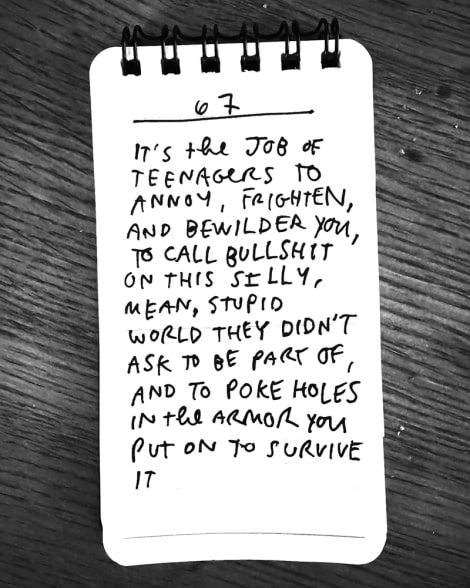 67
IT'S the JOB OF
TEENAGERS TO
ANNOY, FRIGHTEN,
AND BEWILDER YOU,
TO CALL BULLSHIT
ON THIS SILLY,
MEAN, STUPID
WORLD THEY DIDN'T
ASK TO BE PART OF,
AND TO POKE HOLES
IN the ARMOR YOU
PUT ON TO SURVIVE
IT